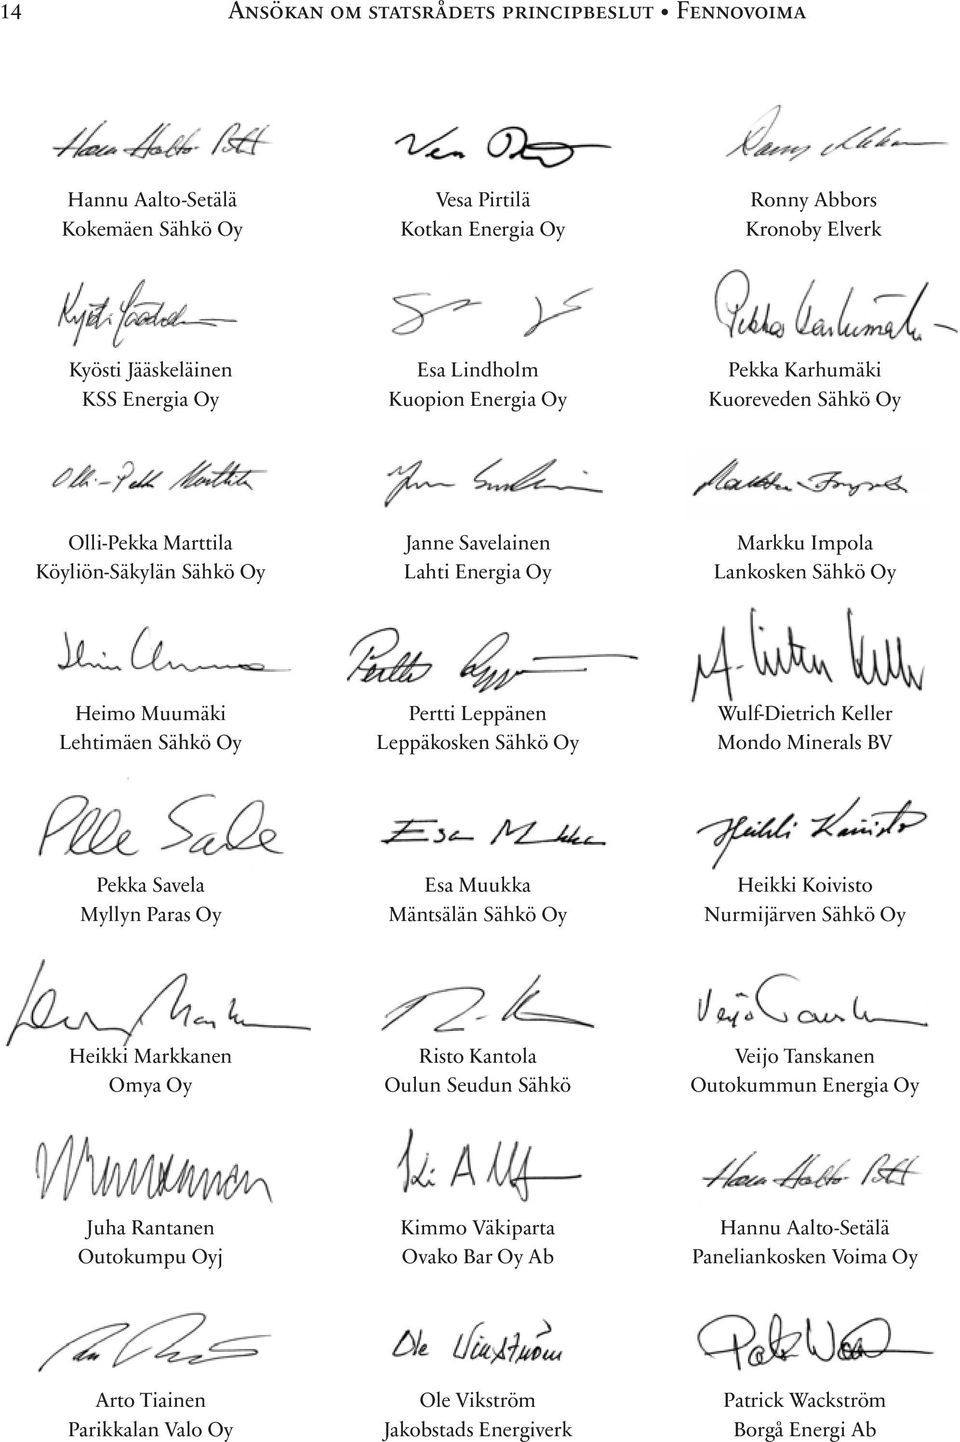 14 Ansökan om statsrådets principbeslut • Fennovoima
Hannu Aalto-Setälä
Kokemäen Sähkö Oy
Vesa Pirtilä
Kotkan Energia Oy
Ronny Abbors
Kronoby Elverk
Kyösti Jääskeläinen
KSS Energia Oy
Esa Lindholm
Kuopion Energia Oy
Pekka Karhumäki
Kuoreveden Sähkö Oy
Olli-Pekka Marttila
Köyliön-Säkylän Sähkö Oy
Janne Savelainen
Lahti Energia Oy
Markku Impola
Lankosken Sähkö Oy
Heimo Muumäki
Lehtimäen Sähkö Oy
Pertti Leppänen
Leppäkosken Sähkö Oy
Wulf-Dietrich Keller
Mondo Minerals BV
Pekka Savela
Myllyn Paras Oy
Esa Muukka
Mäntsälän Sähkö Oy
Heikki Koivisto
Nurmijärven Sähkö Oy
Heikki Markkanen
Omya Oy
Risto Kantola
Oulun Seudun Sähkö
Veijo Tanskanen
Outokummun Energia Oy
Juha Rantanen
Outokumpu Oyj
Kimmo Väkiparta
Ovako Bar Oy Ab
Hannu Aalto-Setälä
Paneliankosken Voima Oy
Arto Tiainen
Parikkalan Valo Oy
Ole Vikström
Jakobstads Energiverk
Patrick Wackström
Borgå Energi Ab